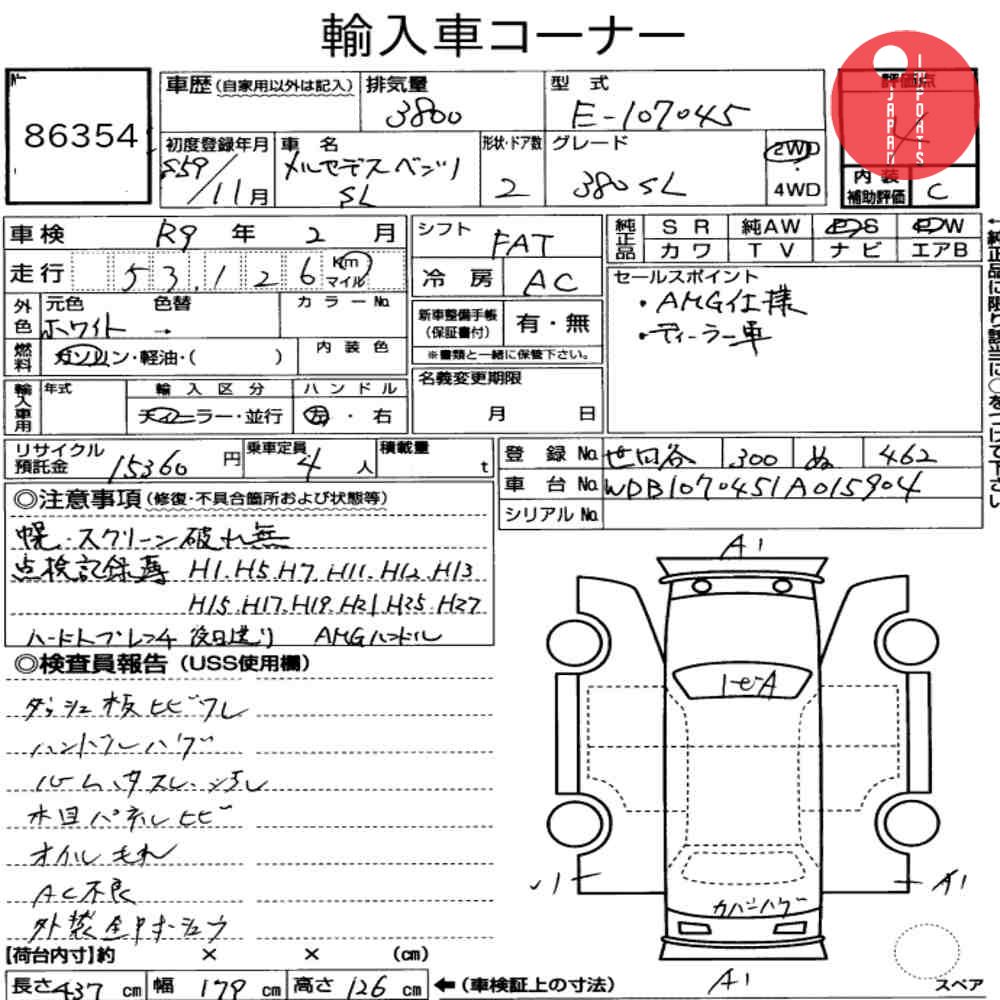 輸入車コーナー
№ 86354
車歴 (自家用以外は記入) 排気量 3800 型式 E-107045 評価点 4
JAPAN IMPORTS
初度登録年月 S59/11月 車名 メルセデスベンツ SL 形状・ドア数 2 グレード 380SL 2WD 4WD 内装補助評価 C
車検 R9年 2月 シフト FAT 純正品 SR 純AW PS PW
カワ TV ナビ エアB
走行 53,126 Km マイル 冷房 AC
外色 元色 ホワイト 色替 → カラーNo. 新車整備手帳(保証書付) 有・無
※書類と一緒に保管下さい。
セールスポイント
・AMG仕様
・ディーラー車
燃料 ガソリン・軽油・( ) 内装色
輸入車用 年式 輸入区分 ディーラー・並行 ハンドル 左・右
名義変更期限 月 日
リサイクル預託金 15360円 乗車定員 4人 積載量 t
登録No. 世田谷 300 ぬ 462
車台No. WDB1070451A015904
シリアルNo.
◎注意事項(修復・不具合箇所および状態等)
幌・スクリーン破れ無
点検記録簿 H1.H5.H7.H11.H12.H13
H15.H17.H19.H21.H25.H27
ハードトップレンチ 後日送り AMGハンドル
◎検査員報告(USS使用欄)
ダッシュ板ヒビワレ
ハンドルハゲ
木目パネルヒビ
オイルもれ
AC不良
A1
カバーハゲ
A1
A1
【荷台内寸】約 × × (cm)
長さ 437 cm 幅 179 cm 高さ 126 cm ←(車検証上の寸法)
スペア